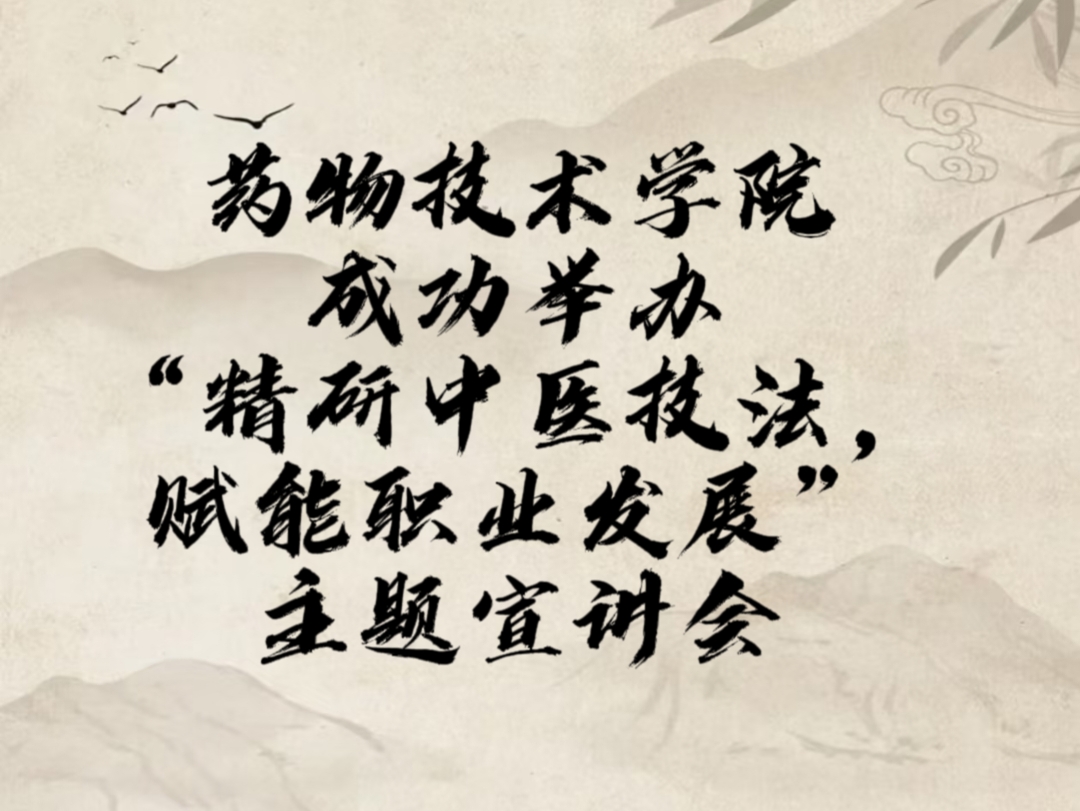 药物技术学院
成功举办
“精研中医技法，
赋能职业发展”
主题宣讲会